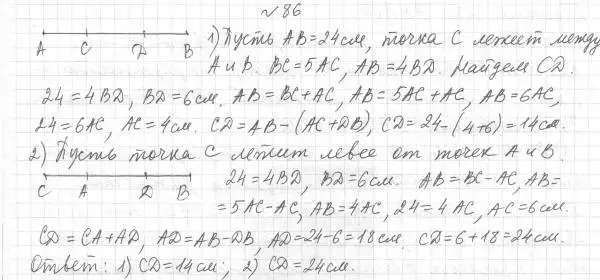 №86
A C D B
1) Пусть AB=24см, точка C лежит между
A и B. BC=5AC, AB=4BD. Найдем CD.
24=4BD, BD=6см. AB=BC+AC, AB=5AC+AC, AB=6AC,
24=6AC, AC=4см. CD=AB-(AC+DB), CD=24-(4+6)=14см.
2) Пусть точка C лежит левее от точек A и B.
C A D B
24=4BD, BD=6см. AB=BC-AC, AB=
=5AC-AC, AB=4AC, 24=4AC, AC=6см.
CD=CA+AD, AD=AB-DB, AD=24-6=18см. CD=6+18=24см.
Ответ: 1) CD=14см; 2) CD=24см.